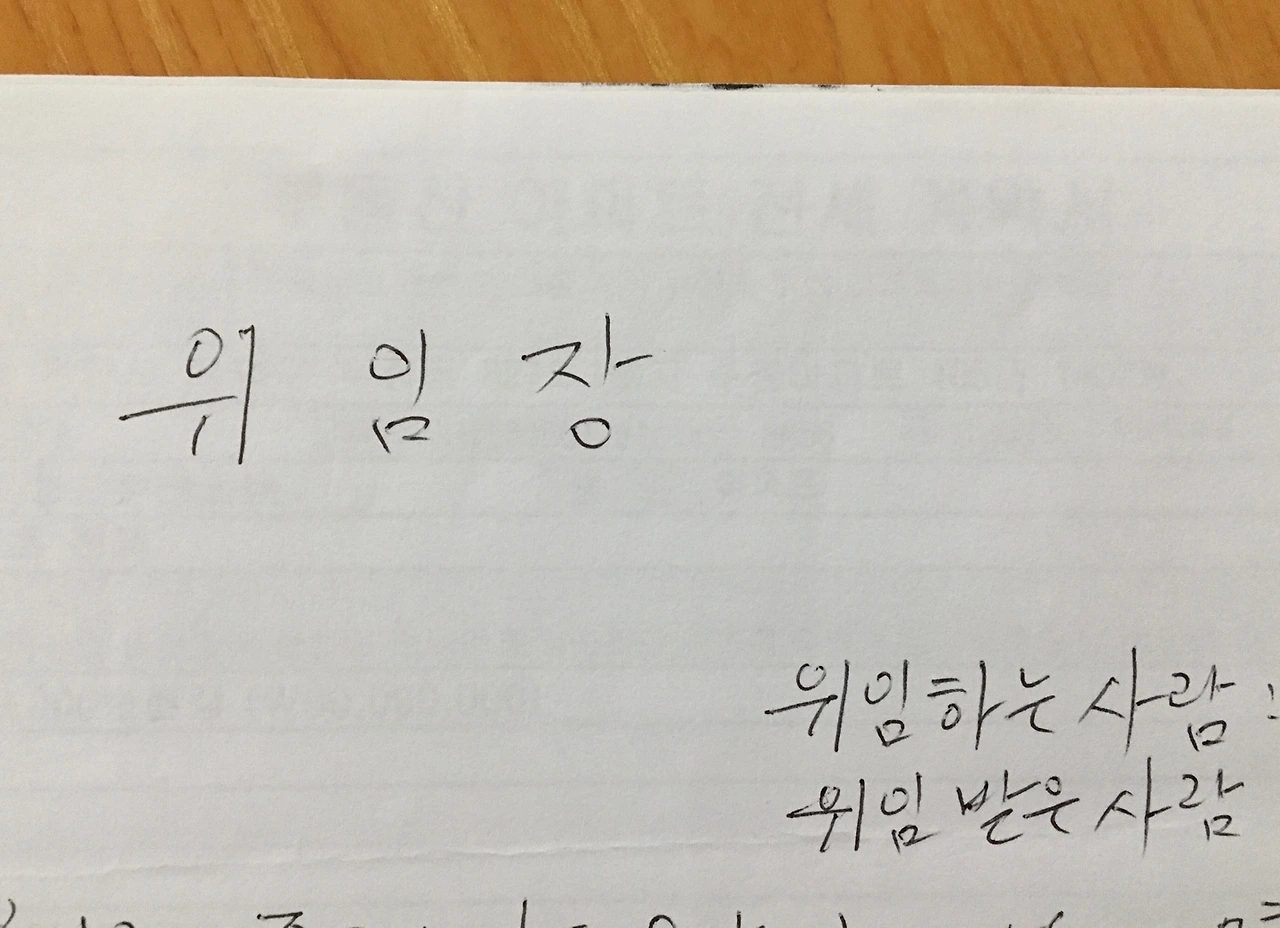 위 임 장
위임하는 사람 :
위임 받은 사람